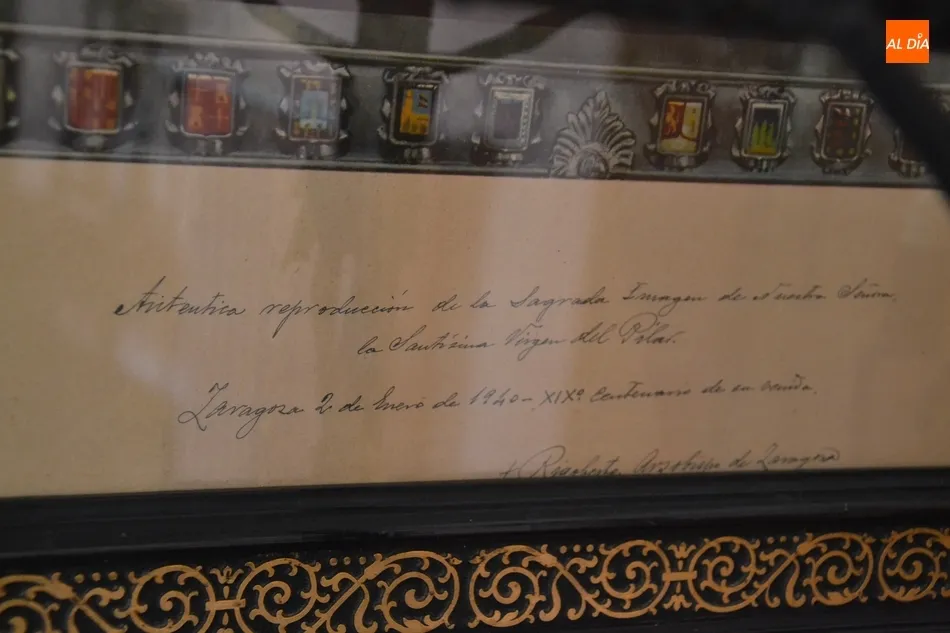 AL DÍA
Autentica reproducción de la Sagrada Imagen de Nuestra Señora,
la Santísima Virgen del Pilar.
Zaragoza 2 de Enero de 1940 - XIXº Centenario de su venida.
+ Rigoberto, Arzobispo de Zaragoza